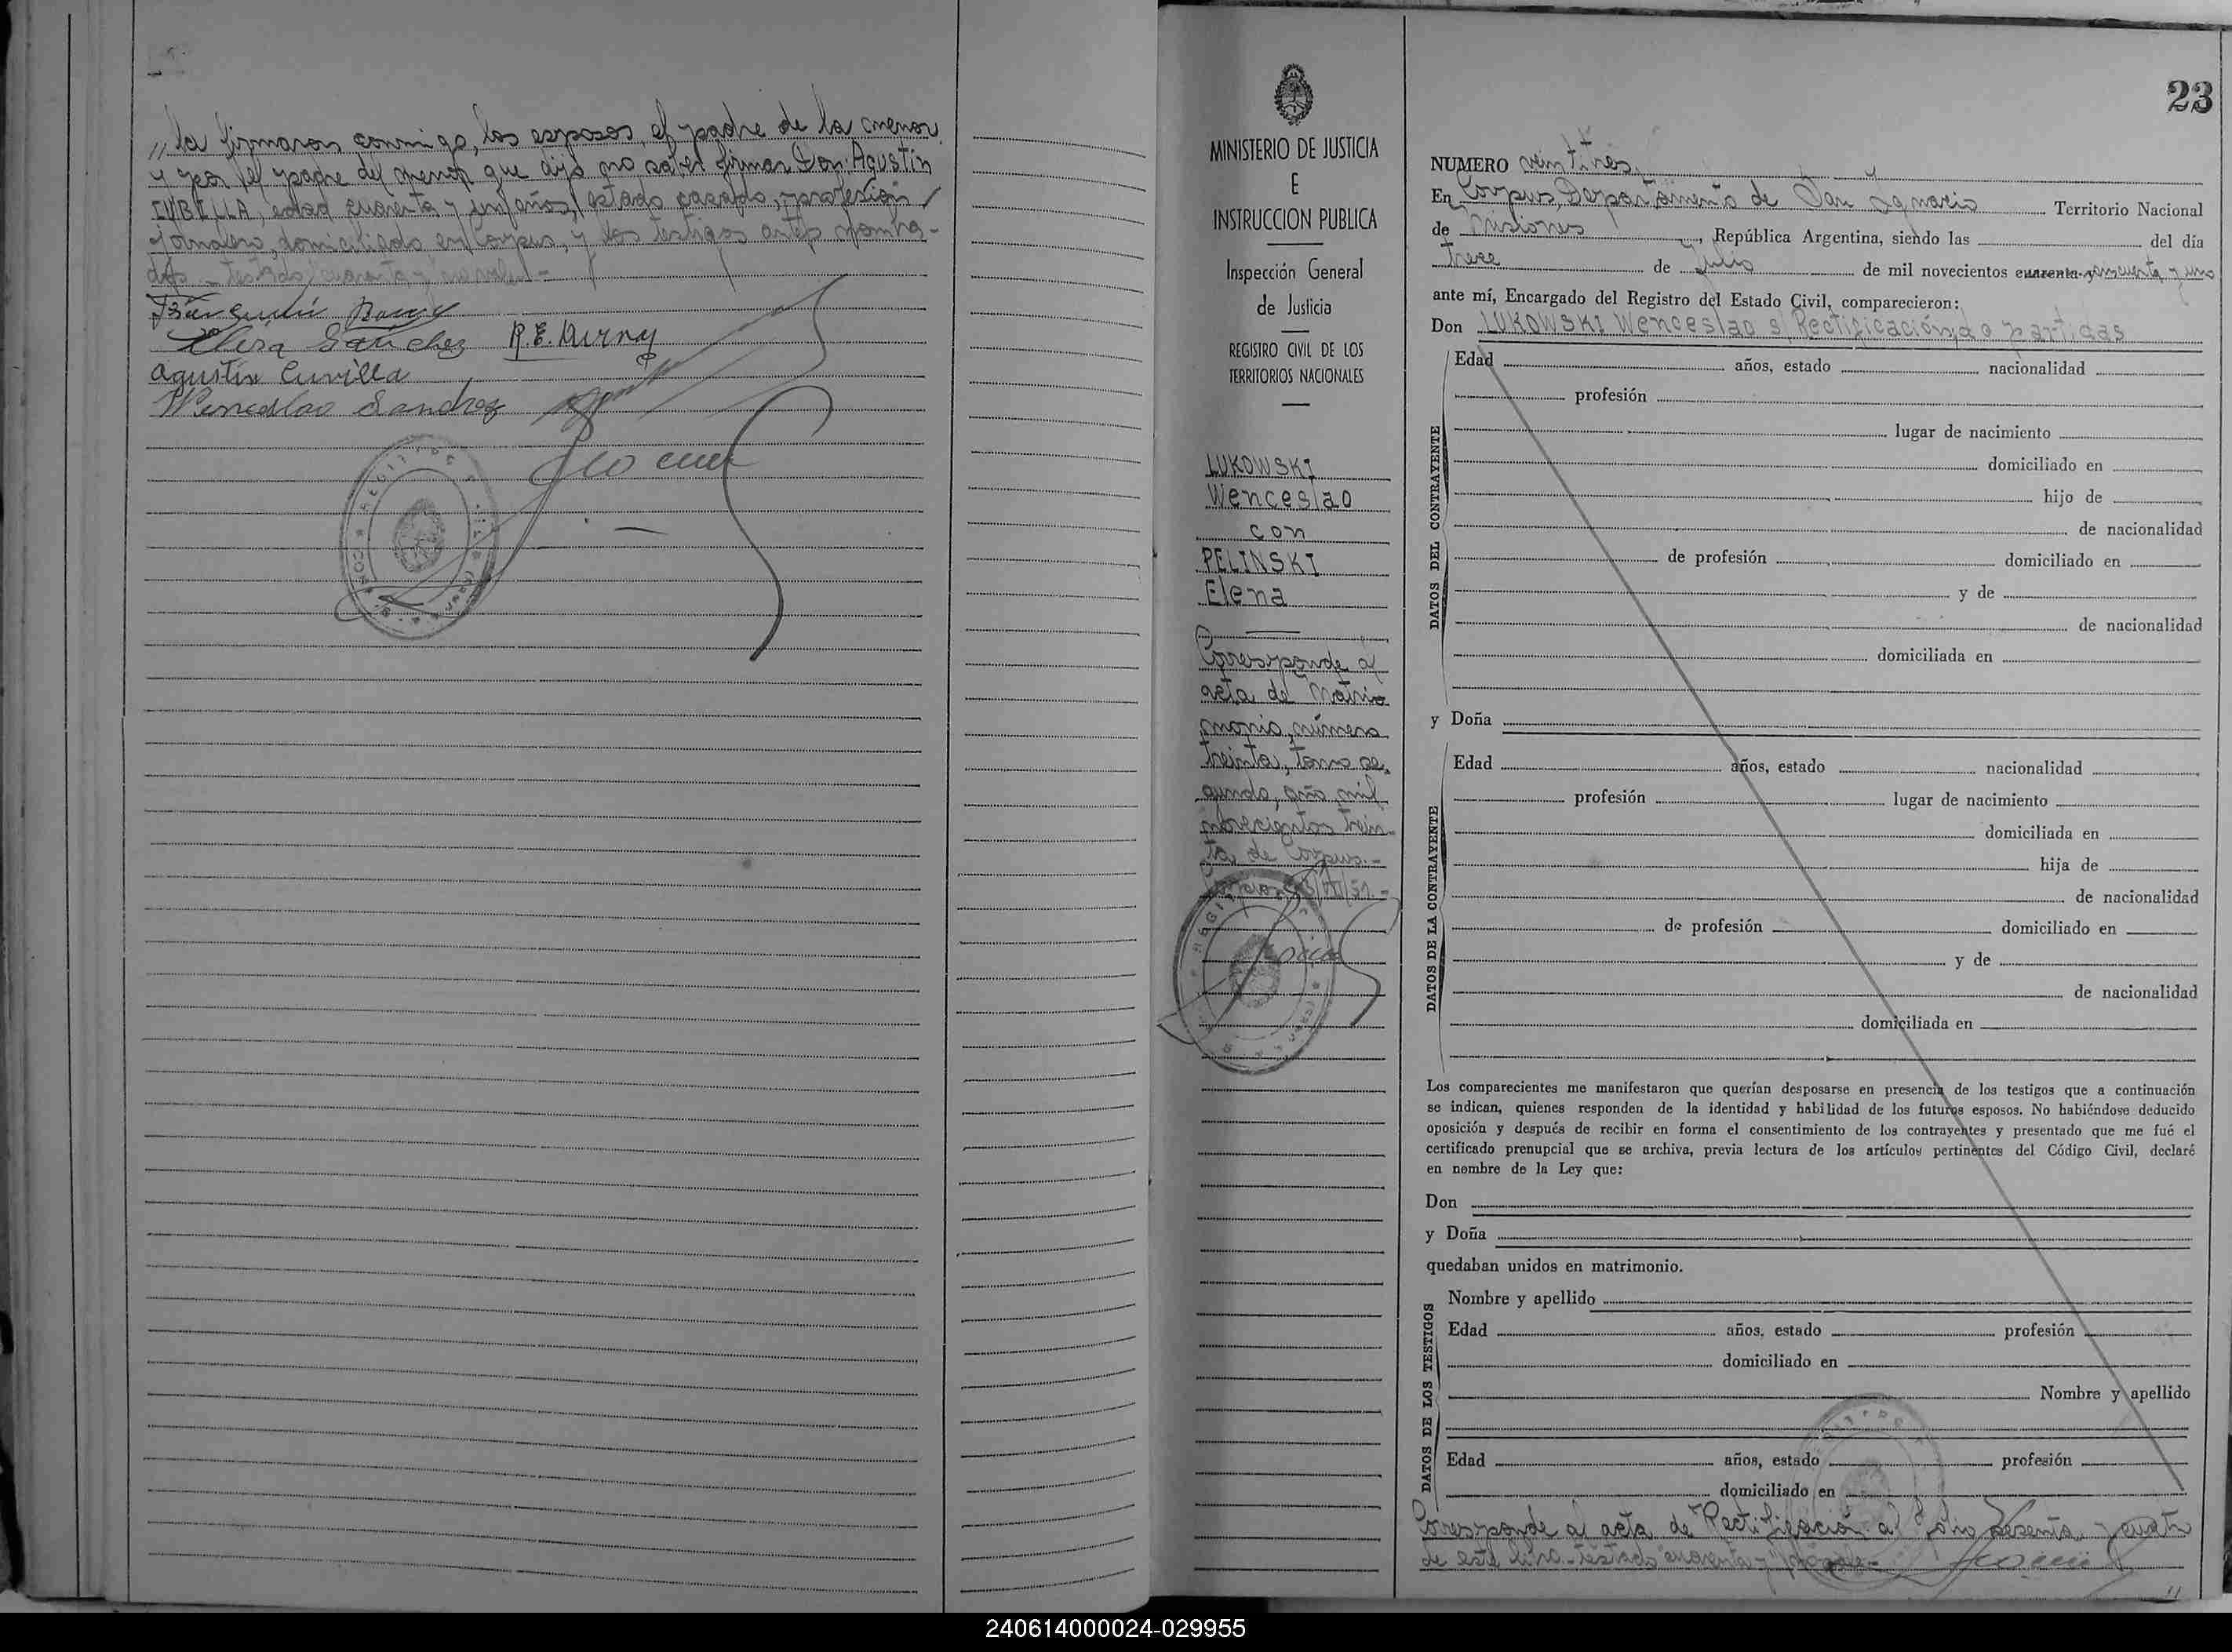 " la firmaron conmigo, los esposos, el padre de la menor
y por el padre del menor que dijo no saber firmar Don: Agustin
CUBILLA, edad cuarenta y un años, estado casado, profesión
jornalero, domiciliado en Corpus, y los testigos antes nombra-
dos - testado "cuarenta y" no vale. -
Elisa Sánchez
Agustin Cuvilla
Wenceslao Sanchez
MINISTERIO DE JUSTICIA
E
INSTRUCCION PUBLICA
Inspección General
de Justicia
REGISTRO CIVIL DE LOS
TERRITORIOS NACIONALES
LUKOWSKI
Wenceslao
con
PELINSKI
Elena
Corresponde al
acta de Matri-
monio, número
treinta, tomo se-
gundo, año mil
novecientos trein-
ta de Corpus. -
23
NUMERO veintitres
En Corpus, Departamento de San Ignacio Territorio Nacional
de Misiones, República Argentina, siendo las del día
trece de Julio de mil novecientos cuarenta y cincuenta y uno
ante mí, Encargado del Registro del Estado Civil, comparecieron:
Don LUKOWSKI Wenceslao s/ Rectificación de partidas
DATOS DEL CONTRAYENTE
Edad años, estado nacionalidad
profesión
lugar de nacimiento
domiciliado en
hijo de
de nacionalidad
de profesión domiciliado en
y de
de nacionalidad
domiciliada en
y Doña
DATOS DE LA CONTRAYENTE
Edad años, estado nacionalidad
profesión lugar de nacimiento
domiciliada en
hija de
de nacionalidad
de profesión domiciliado en
y de
de nacionalidad
domiciliada en
Los comparecientes me manifestaron que querían desposarse en presencia de los testigos que a continuación
se indican, quienes responden de la identidad y habilidad de los futuros esposos. No habiéndose deducido
oposición y después de recibir en forma el consentimiento de los contrayentes y presentado que me fué el
certificado prenupcial que se archiva, previa lectura de los artículos pertinentes del Código Civil, declaré
en nombre de la Ley que:
Don
y Doña
quedaban unidos en matrimonio.
DATOS DE LOS TESTIGOS
Nombre y apellido
Edad años, estado profesión
domiciliado en
Nombre y apellido
Edad años, estado profesión
domiciliado en
Corresponde al acta de Rectificación al folio sesenta y cuatro
de este libro. - testado "cuarenta y" no vale. -
240614000024-029955